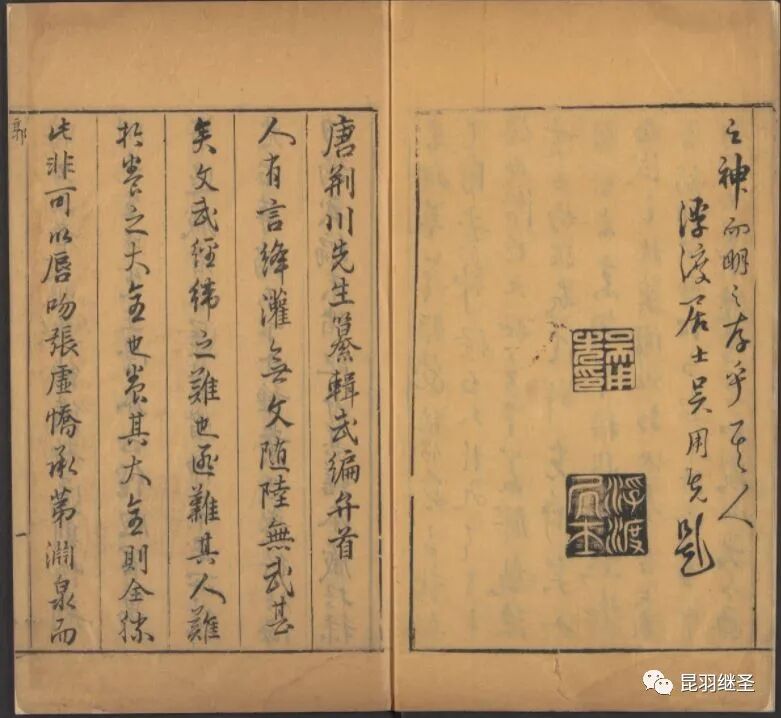 之神而明之存乎其人
浮渡居士吳用先題
吳用先印
浮渡居士
唐荊川先生纂輯武編弁首
人有言絳灌無文随陸無武甚
矣文武經緯之難也匪難其人難
於養之大全也養其大全則全
此非可以唇吻張虛憍承第淵泉而
郭
一
昆羽继圣